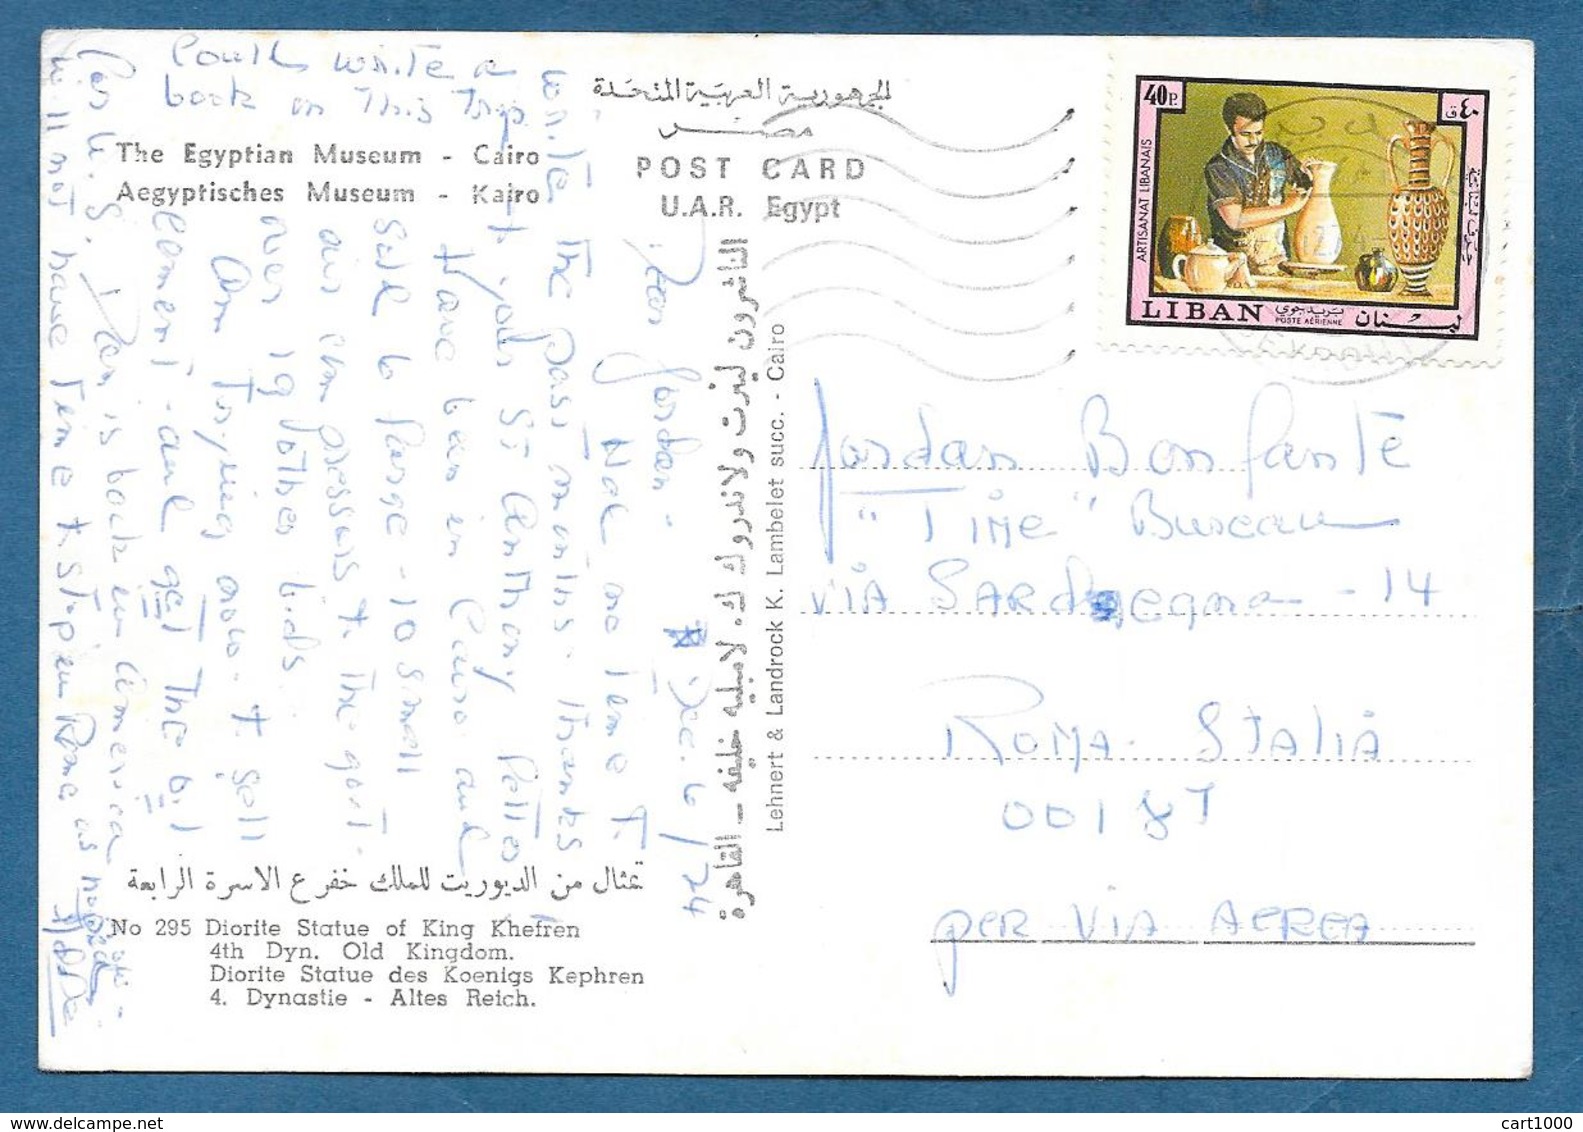 Could write a
book on This Trip
The Egyptian Museum - Cairo
Aegyptisches Museum - Kairo
الجمهورية العربية المتحدة
مصر
POST CARD
U.A.R. Egypt
40P.
٤٠ ق
ARTISANAT LIBANAIS
LIBAN
بريد جوي
POSTE AÉRIENNE
لبنان
Dec. 6/74
Dear Jordan -
Not one Time T.
write The past months. Thanks
T. your St Anthony
Have been in Cairo and
sold 6 large - 10 small
air compressors T. The govt.
over 19 other bids.
am Trying now T. sell
cement - and get The oil
for U.S. Dan is back in America
will not have Time T. stop in Rome as
الناشرون لينرت ولاندروك ك. لامبليه خليفه - القاهرة
Lehnert & Landrock K. Lambelet succ. - Cairo
Jordan Bonfante
"Time" Bureau
VIA SARDegna - 14
ROMA - ITALIA
00187
per VIA AEREA
تمثال من الديوريت للملك خفرع الاسرة الرابعة
No 295 Diorite Statue of King Khefren
4th Dyn. Old Kingdom.
Diorite Statue des Koenigs Kephren
4. Dynastie - Altes Reich.
cart1000